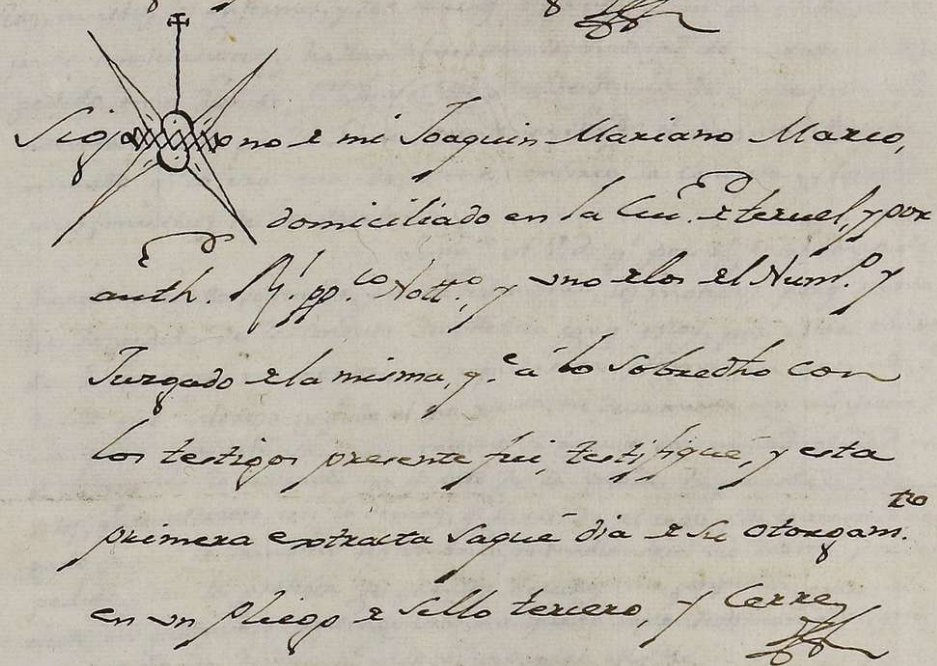 Sig no de mi Joaquin Mariano Marco,
domiciliado en la Ciu.d de teruel, y por
auth. Rl. pp.co Nott.o, y uno de los del Num.o y
Juzgado de la misma, q.e a lo sobredho con
los testigos presente fui, testifiqué, y esta
primera extracta saqué dia de su otorgam.to
en un pliego de sello tercero y Cerre